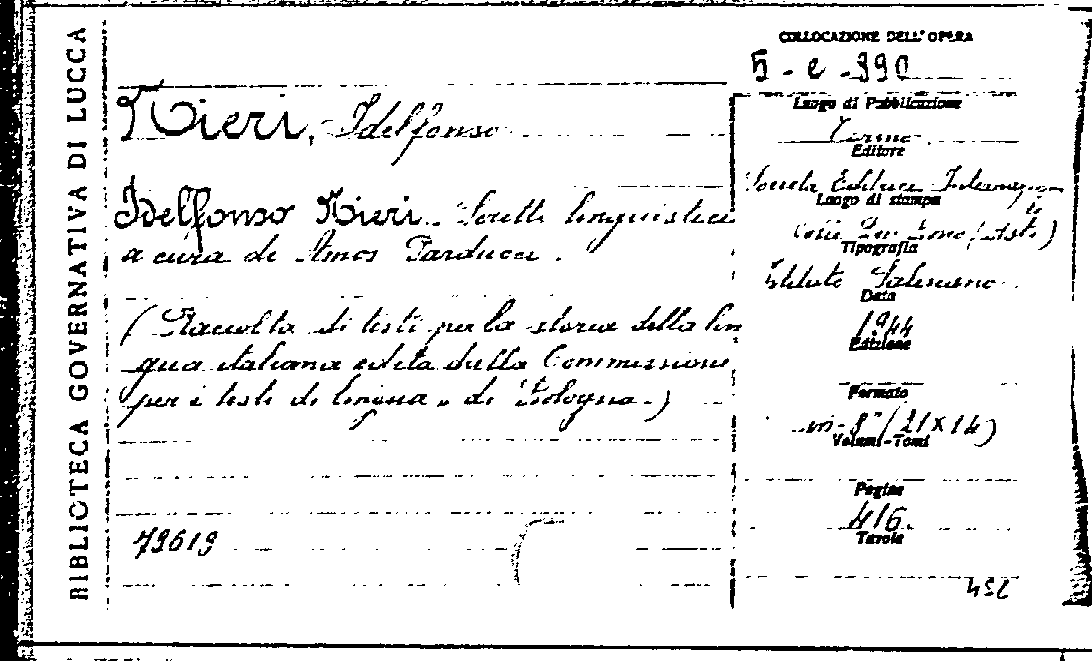 BIBLIOTECA GOVERNATIVA DI LUCCA
Nieri, Idelfonso
Idelfonso Nieri. Scritti linguistici
a cura di Amos Parducci.
(Raccolta di testi per la storia della lin
gua italiana edita dalla Commissione
per i testi di lingua" di Bologna.)
79619
COLLOCAZIONE DELL'OPERA
5-e-390
Luogo di Pubblicazione
Torino
Editore
Società Editrice Internazion
le
Luogo di stampa
Don Bosco (Asti)
Tipografia
Istituto Salesiano
Data
1944
Edizione
Formato
in-8° (21x14)
Volumi-Tomi
Pagine
416.
Tavole